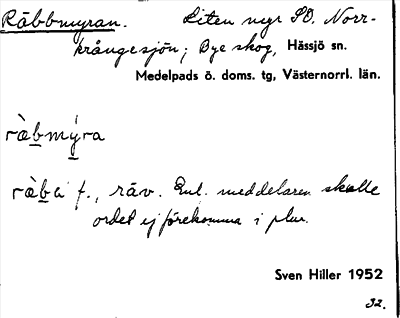 Räbbmyran. Liten myr SO. Norr-
krångesjön; Bye skog, Hässjö sn.
Medelpads ö. doms. tg, Västernorrl. län.
ràbmýra
ràba f., räv. Enl. meddelaren skulle
ordet ej förekomma i plur.
Sven Hiller 1952
32.